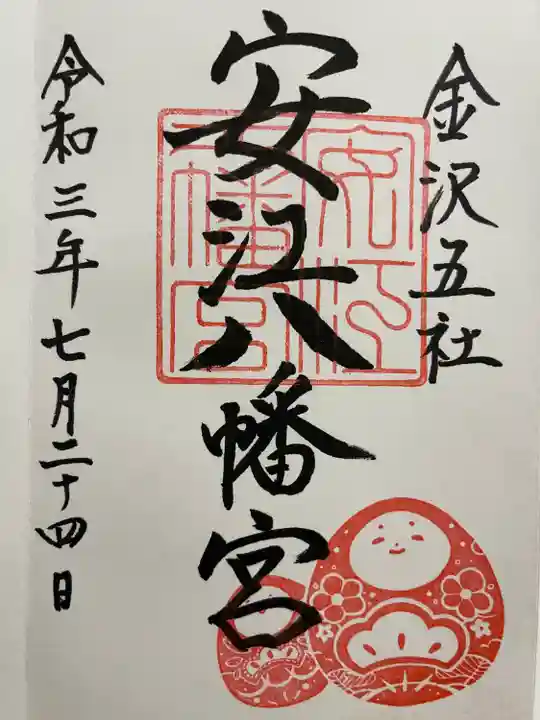 金沢五社
安江八幡宮
安江八幡宮
令和三年七月二十四日